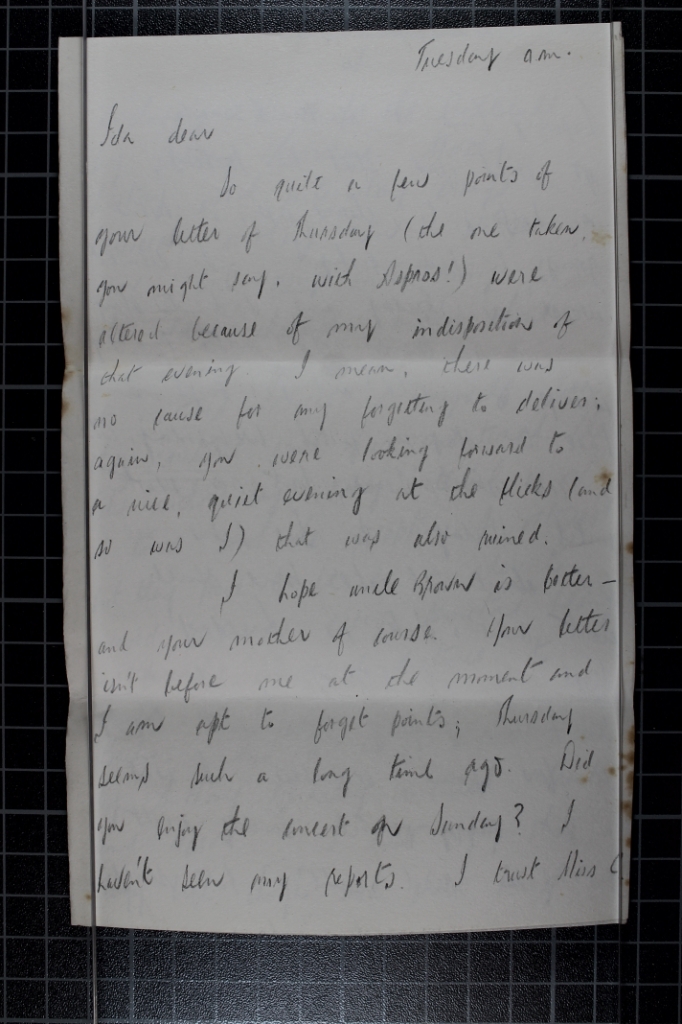 Tuesday a.m.
Ida dear
So quite a few points of
your letter of Thursday (the one taken,
you might say, with Aspros!) were
altered because of my indisposition of
that evening. I mean, there was
no cause for my forgetting to deliver;
again, you were looking forward to
a nice, quiet evening at the flicks (and
so was I) that was also ruined.
I hope uncle Brown is better –
and your mother of course. Your letter
isn't before me at the moment and
I am apt to forget points; Thursday
seems such a long time ago. Did
you enjoy the concert on Sunday? I
haven't seen any reports. I trust Miss C